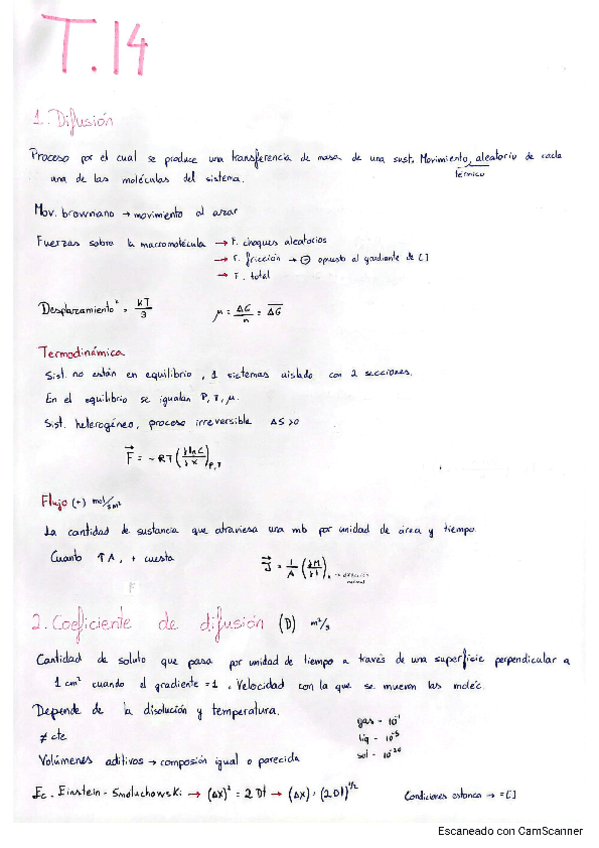 T.14
1. Difusión
Proceso por el cual se produce una transferencia de masa de una sust. Movimiento aleatorio de cada
térmico
una de las moléculas del sistema.
Mov. browniano → movimiento al azar
Fuerzas sobre la macromolécula → F. choques aleatorios
→ F. fricción → ⊖ opuesto al gradiente de []
→ F. total
Desplazamiento² = kT/3
μ = ΔG/n = ΔG̅
Termodinámica
Sist. no están en equilibrio, 1 sistemas aislado con 2 secciones.
En el equilibrio se igualan P, T, μ.
Sist. heterogéneo, proceso irreversible ΔS>0
F⃗ = -RT (∂lnC/∂x)P,T
Flujo (+) mol/sm²
La cantidad de sustancia que atraviesa una mb por unidad de área y tiempo.
Cuanto ↑A, + cuesta
J⃗ = 1/A (∂M/∂t) → dirección normal
2. Coeficiente de difusión (D) m²/s
Cantidad de soluto que pasa por unidad de tiempo a través de una superficie perpendicular a
1 cm² cuando el gradiente = 1. Velocidad con la que se mueven las moléc.
Depende de la disolución y temperatura.
≠ cte
gas - 10⁻¹
liq - 10⁻⁵
sol - 10⁻²⁰
Volúmenes aditivos → composión igual o parecida
Ec. Einstein - Smoluchowski → (Δx)² = 2Dt → (Δx) = (2Dt)^1/2
Condiciones estanca → = []
Escaneado con CamScanner